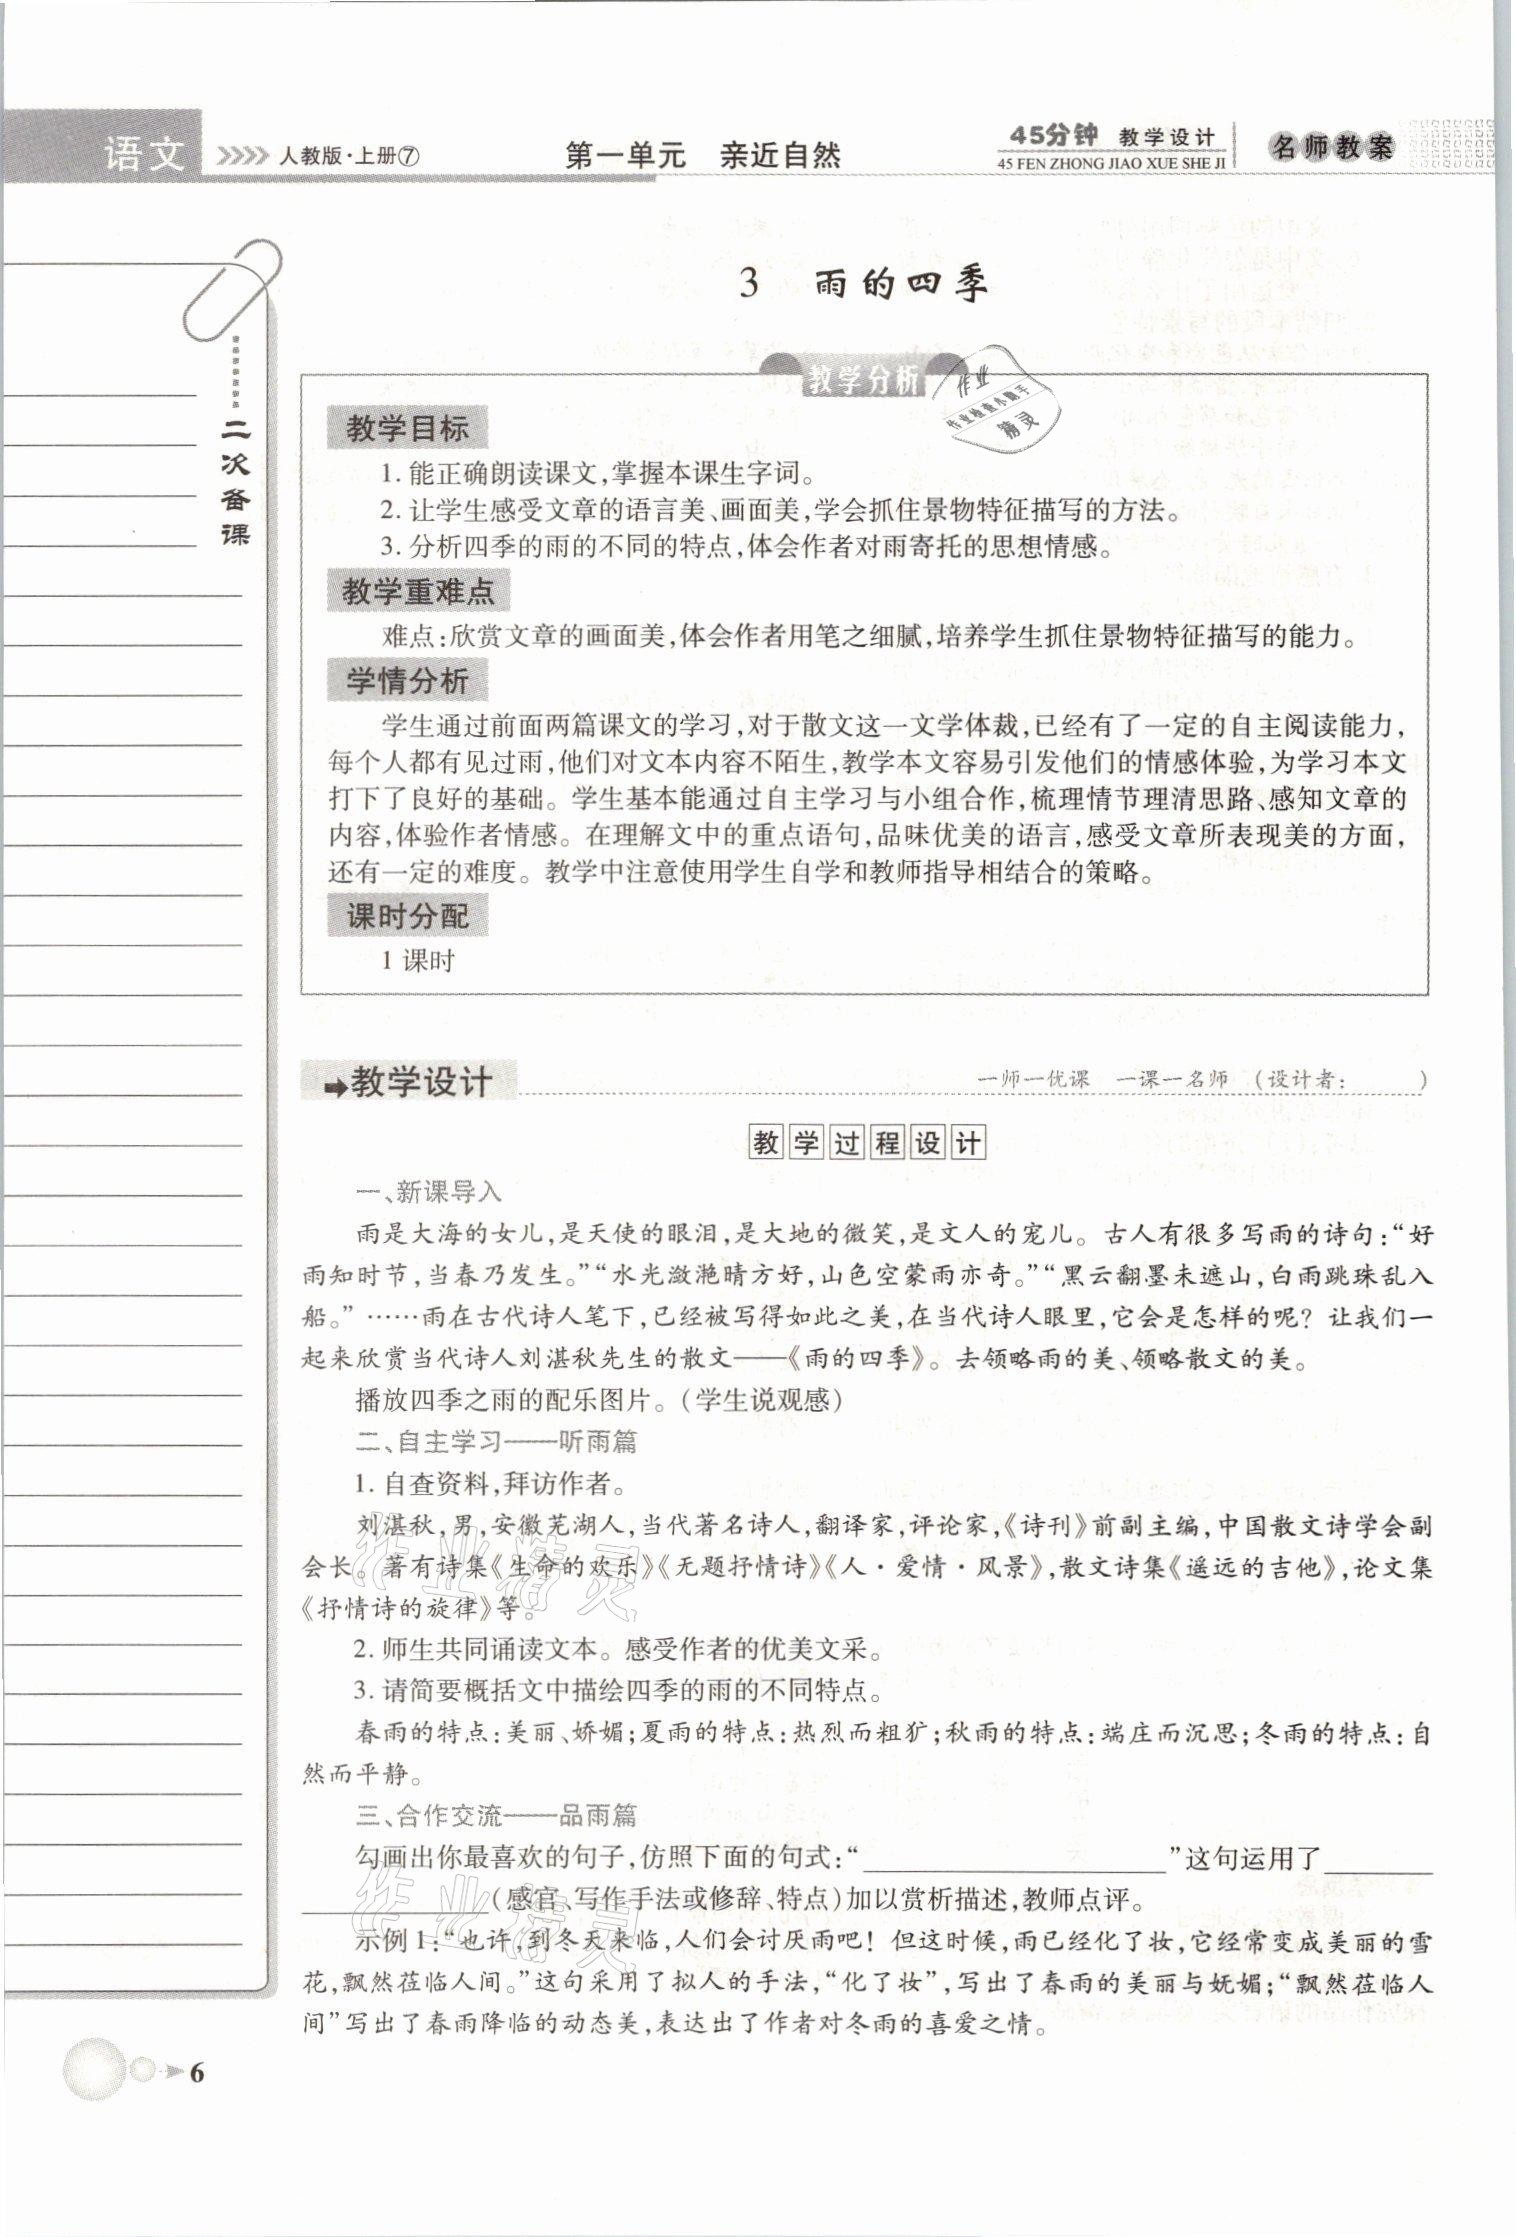 语文
人教版·上册⑦
第一单元 亲近自然
45分钟 教学设计
45 FEN ZHONG JIAO XUE SHE JI
名师教案
二次备课
3 雨的四季
教学分析
作业
作业检查小助手
精灵
教学目标
1. 能正确朗读课文,掌握本课生字词。
2. 让学生感受文章的语言美、画面美,学会抓住景物特征描写的方法。
3. 分析四季的雨的不同的特点,体会作者对雨寄托的思想情感。
教学重难点
难点:欣赏文章的画面美,体会作者用笔之细腻,培养学生抓住景物特征描写的能力。
学情分析
学生通过前面两篇课文的学习,对于散文这一文学体裁,已经有了一定的自主阅读能力,
每个人都有见过雨,他们对文本内容不陌生,教学本文容易引发他们的情感体验,为学习本文
打下了良好的基础。学生基本能通过自主学习与小组合作,梳理情节理清思路、感知文章的
内容,体验作者情感。在理解文中的重点语句,品味优美的语言,感受文章所表现美的方面,
还有一定的难度。教学中注意使用学生自学和教师指导相结合的策略。
课时分配
1 课时
教学设计
一师一优课 一课一名师 (设计者: )
教学过程设计
一、新课导入
雨是大海的女儿,是天使的眼泪,是大地的微笑,是文人的宠儿。古人有很多写雨的诗句:“好
雨知时节,当春乃发生。”“水光潋滟晴方好,山色空蒙雨亦奇。”“黑云翻墨未遮山,白雨跳珠乱入
船。”……雨在古代诗人笔下,已经被写得如此之美,在当代诗人眼里,它会是怎样的呢?让我们一
起来欣赏当代诗人刘湛秋先生的散文——《雨的四季》。去领略雨的美、领略散文的美。
播放四季之雨的配乐图片。(学生说观感)
二、自主学习——听雨篇
1. 自查资料,拜访作者。
刘湛秋,男,安徽芜湖人,当代著名诗人,翻译家,评论家,《诗刊》前副主编,中国散文诗学会副
会长。著有诗集《生命的欢乐》《无题抒情诗》《人·爱情·风景》,散文诗集《遥远的吉他》,论文集
《抒情诗的旋律》等。
2. 师生共同诵读文本。感受作者的优美文采。
3. 请简要概括文中描绘四季的雨的不同特点。
春雨的特点:美丽、娇媚;夏雨的特点:热烈而粗犷;秋雨的特点:端庄而沉思;冬雨的特点:自
然而平静。
三、合作交流——品雨篇
勾画出你最喜欢的句子,仿照下面的句式:“____________”这句运用了____
________(感官、写作手法或修辞、特点)加以赏析描述,教师点评。
示例1:“也许,到冬天来临,人们会讨厌雨吧!但这时候,雨已经化了妆,它经常变成美丽的雪
花,飘然莅临人间。”这句采用了拟人的手法,“化了妆”,写出了春雨的美丽与妩媚;“飘然莅临人
间”写出了春雨降临的动态美,表达出了作者对冬雨的喜爱之情。
作业精灵
作业精灵
6